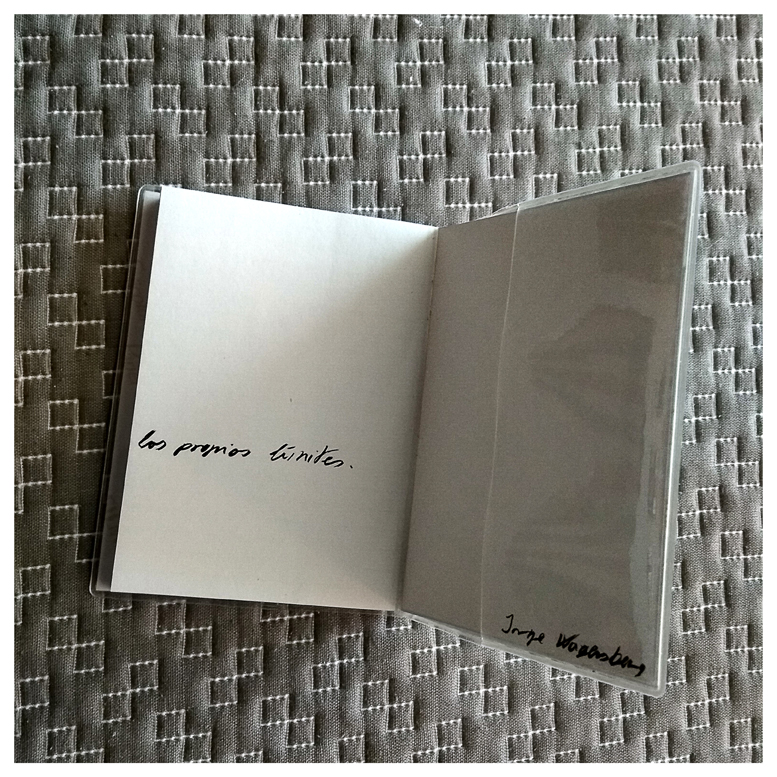 los propios límites.
Jorge Wagensberg